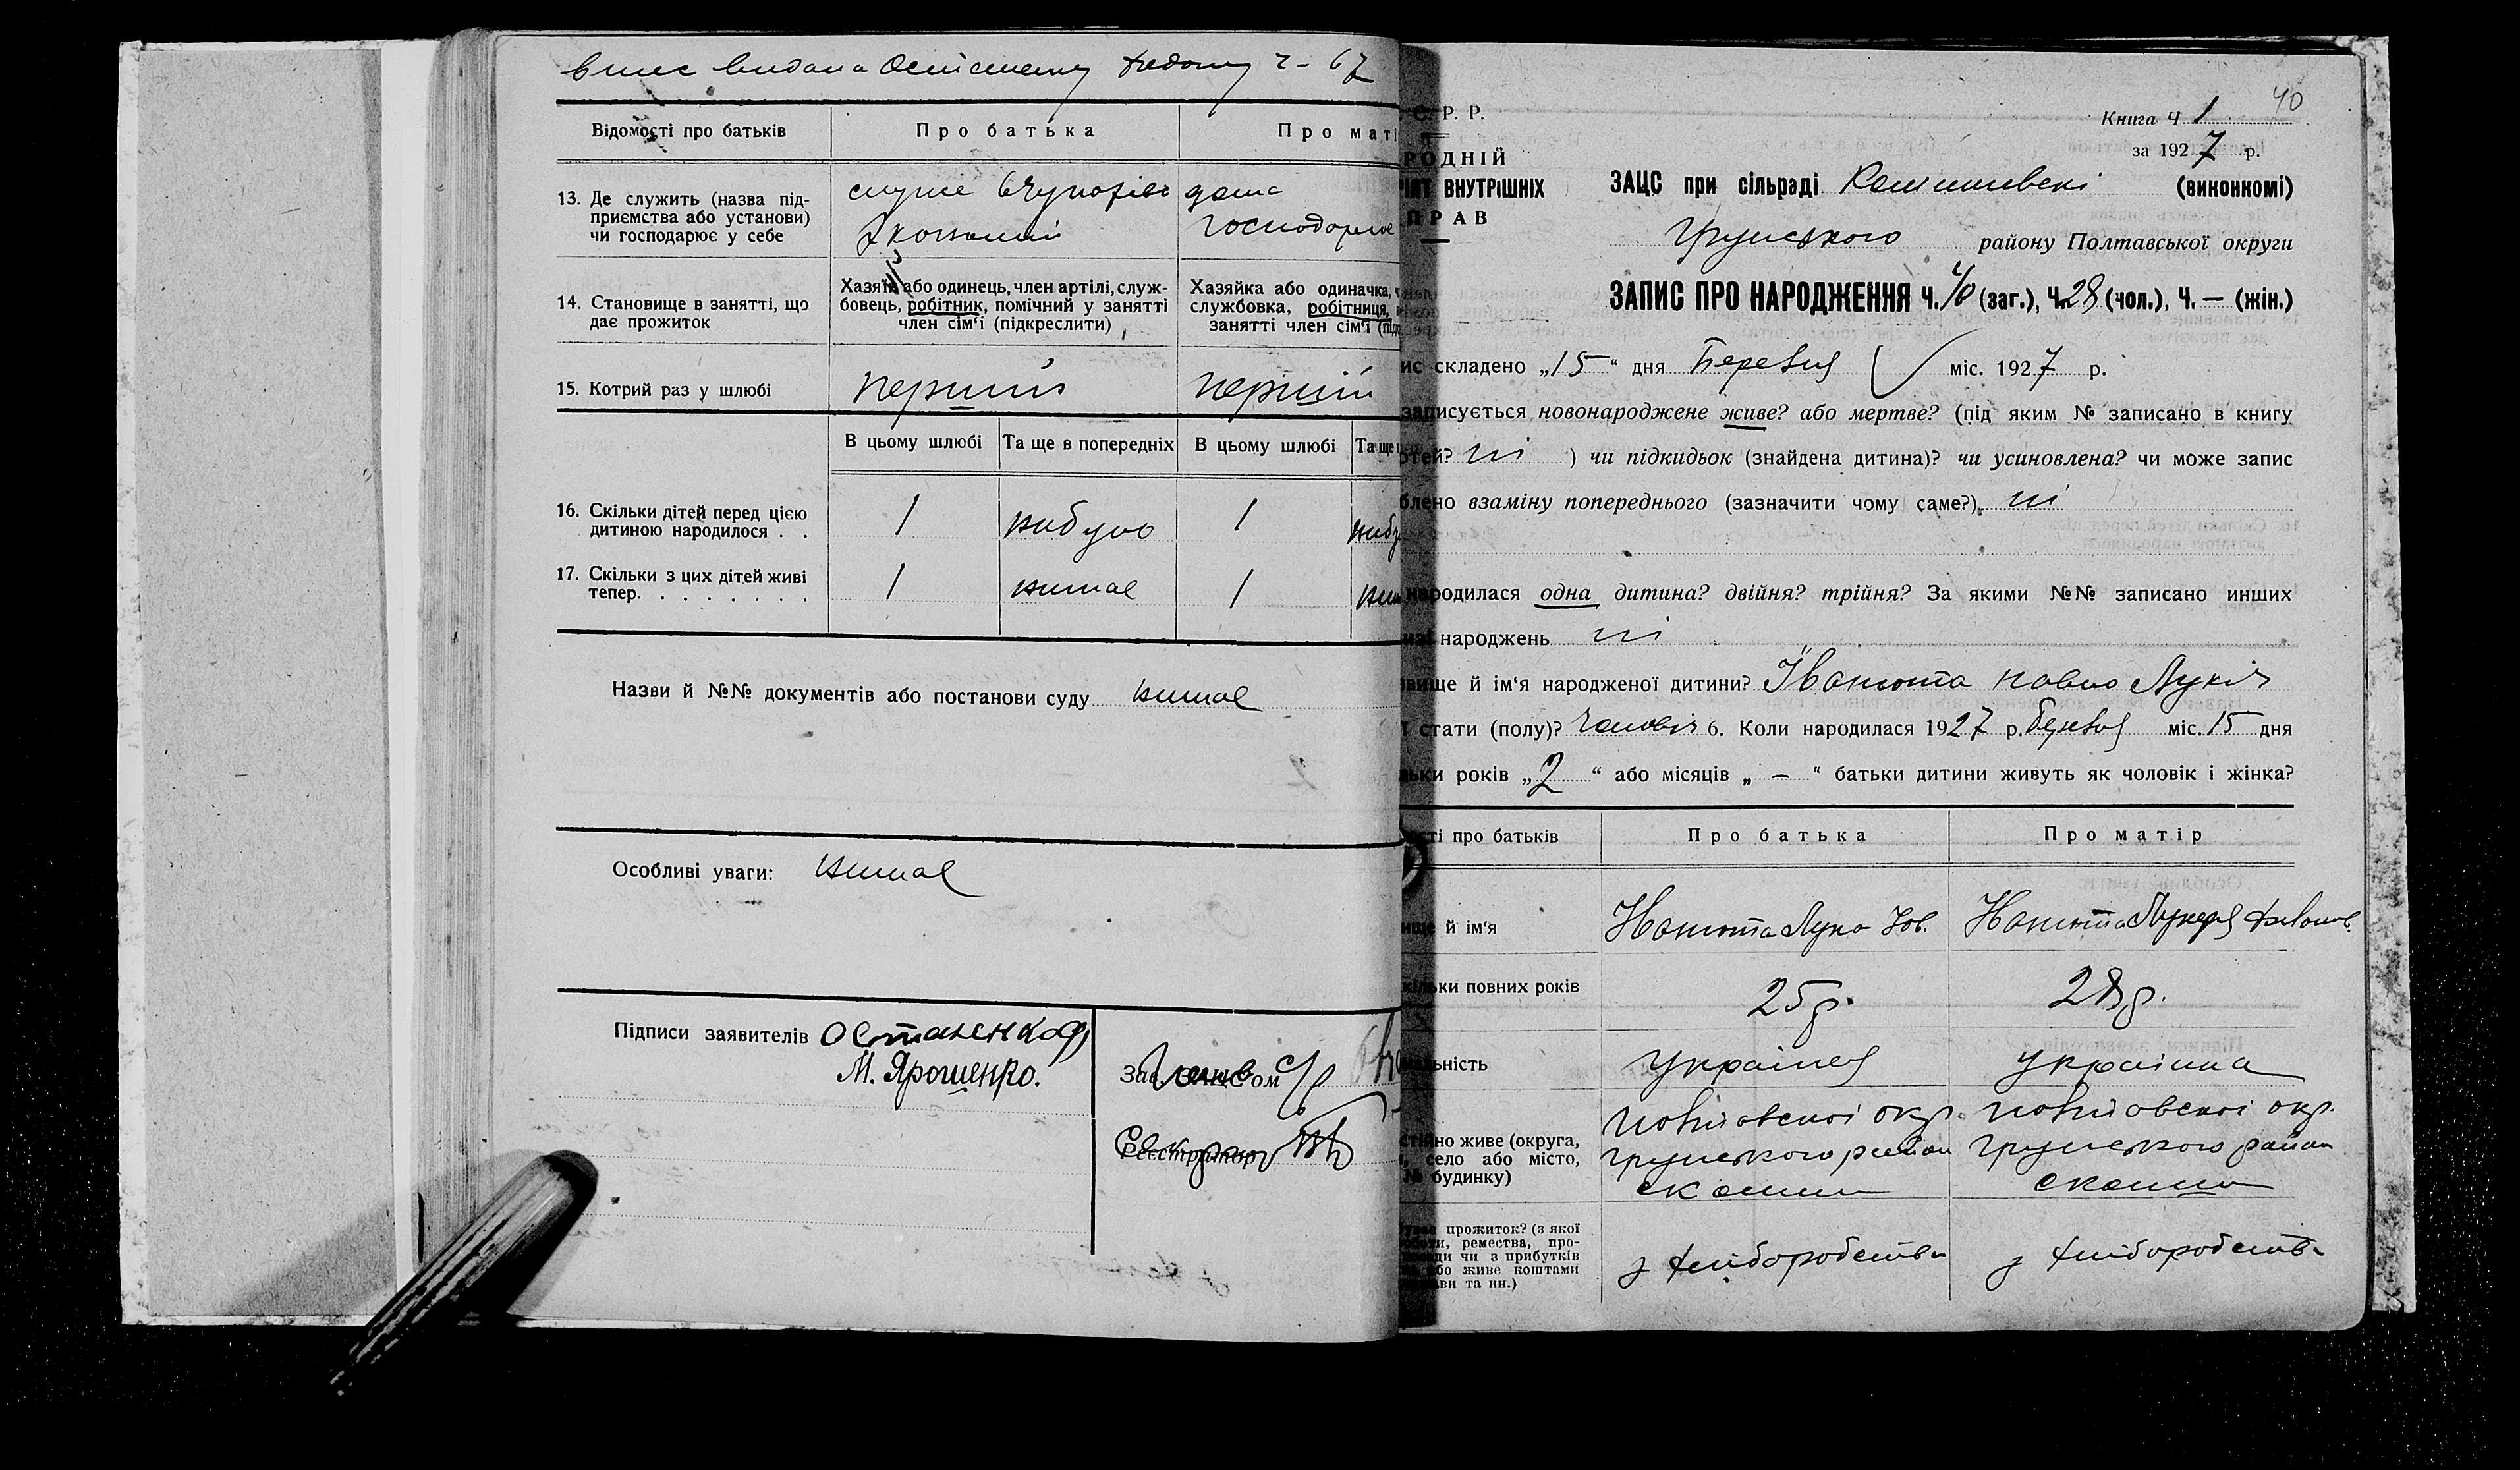 видана
Відомості про батьків
Про батька
Про маті
13. Де служить (назва під-
приємства або установи)
чи господарює у себе
служе
дома
господорює
14. Становище в занятті, що
дає прожиток
Хазяїн або одинець, член артілі, служ-
бовець, робітник, помічний у занятті
член сім'ї (підкреслити)
Хазяйка або одиначка,
службовка, робітниця,
занятті член сім'ї (під
15. Котрий раз у шлюбі
перший
перший
В цьому шлюбі
Та ще в попередніх
В цьому шлюбі
Та ще
16. Скільки дітей перед цією
дитиною народилося . .
1
небуло
1
17. Скільки з цих дітей живі
тепер. . . . . . . .
1
нимає
1
Назви й №№ документів або постанови суду нимає
Особливі уваги: нимає
Підписи заявителів Остапенко
М. Ярошенко.
Зав. ЗАЦС'ом
Секретар
Реєстратор
40
С. Р. Р.
РОДНІЙ
ВНУТРІШНІХ
ПРАВ
Книга Ч 1
за 1927 р.
ЗАЦС при сільраді (виконкомі)
Грунського району Полтавської округи
ЗАПИС ПРО НАРОДЖЕННЯ Ч. 40 (заг.), Ч. 28 (чол.), Ч. — (жін.)
складено „15“ дня Березня міс. 1927 р.
записується новонароджене живе? або мертве? (під яким № записано в книгу
ні ) чи підкидьок (знайдена дитина)? чи усиновлена? чи може запис
взаміну попереднього (зазначити чому саме?) ні
народилася одна дитина? двійня? трійня? За якими №№ записано инших
народжень ні
й ім'я народженої дитини? Іванюта Павло Лукич
стати (полу)? чоловіч 6. Коли народилася 1927 р. Березня міс. 15 дня
років „2“ або місяців „—“ батьки дитини живуть як чоловік і жінка?
про батьків
Про батька
Про матір
й ім'я
Іванюта Лука
Іванюта
повних років
25 р.
28 р.
Українец
Українка
живе (округа,
село або місто,
будинку)
Полтавскої окр.
Грунського район
Полтавскої окр.
Грунського район
прожиток? (з якої
ремества, про-
чи з прибутків
або живе коштами
та ин.)
з хліборобства
з хліборобства